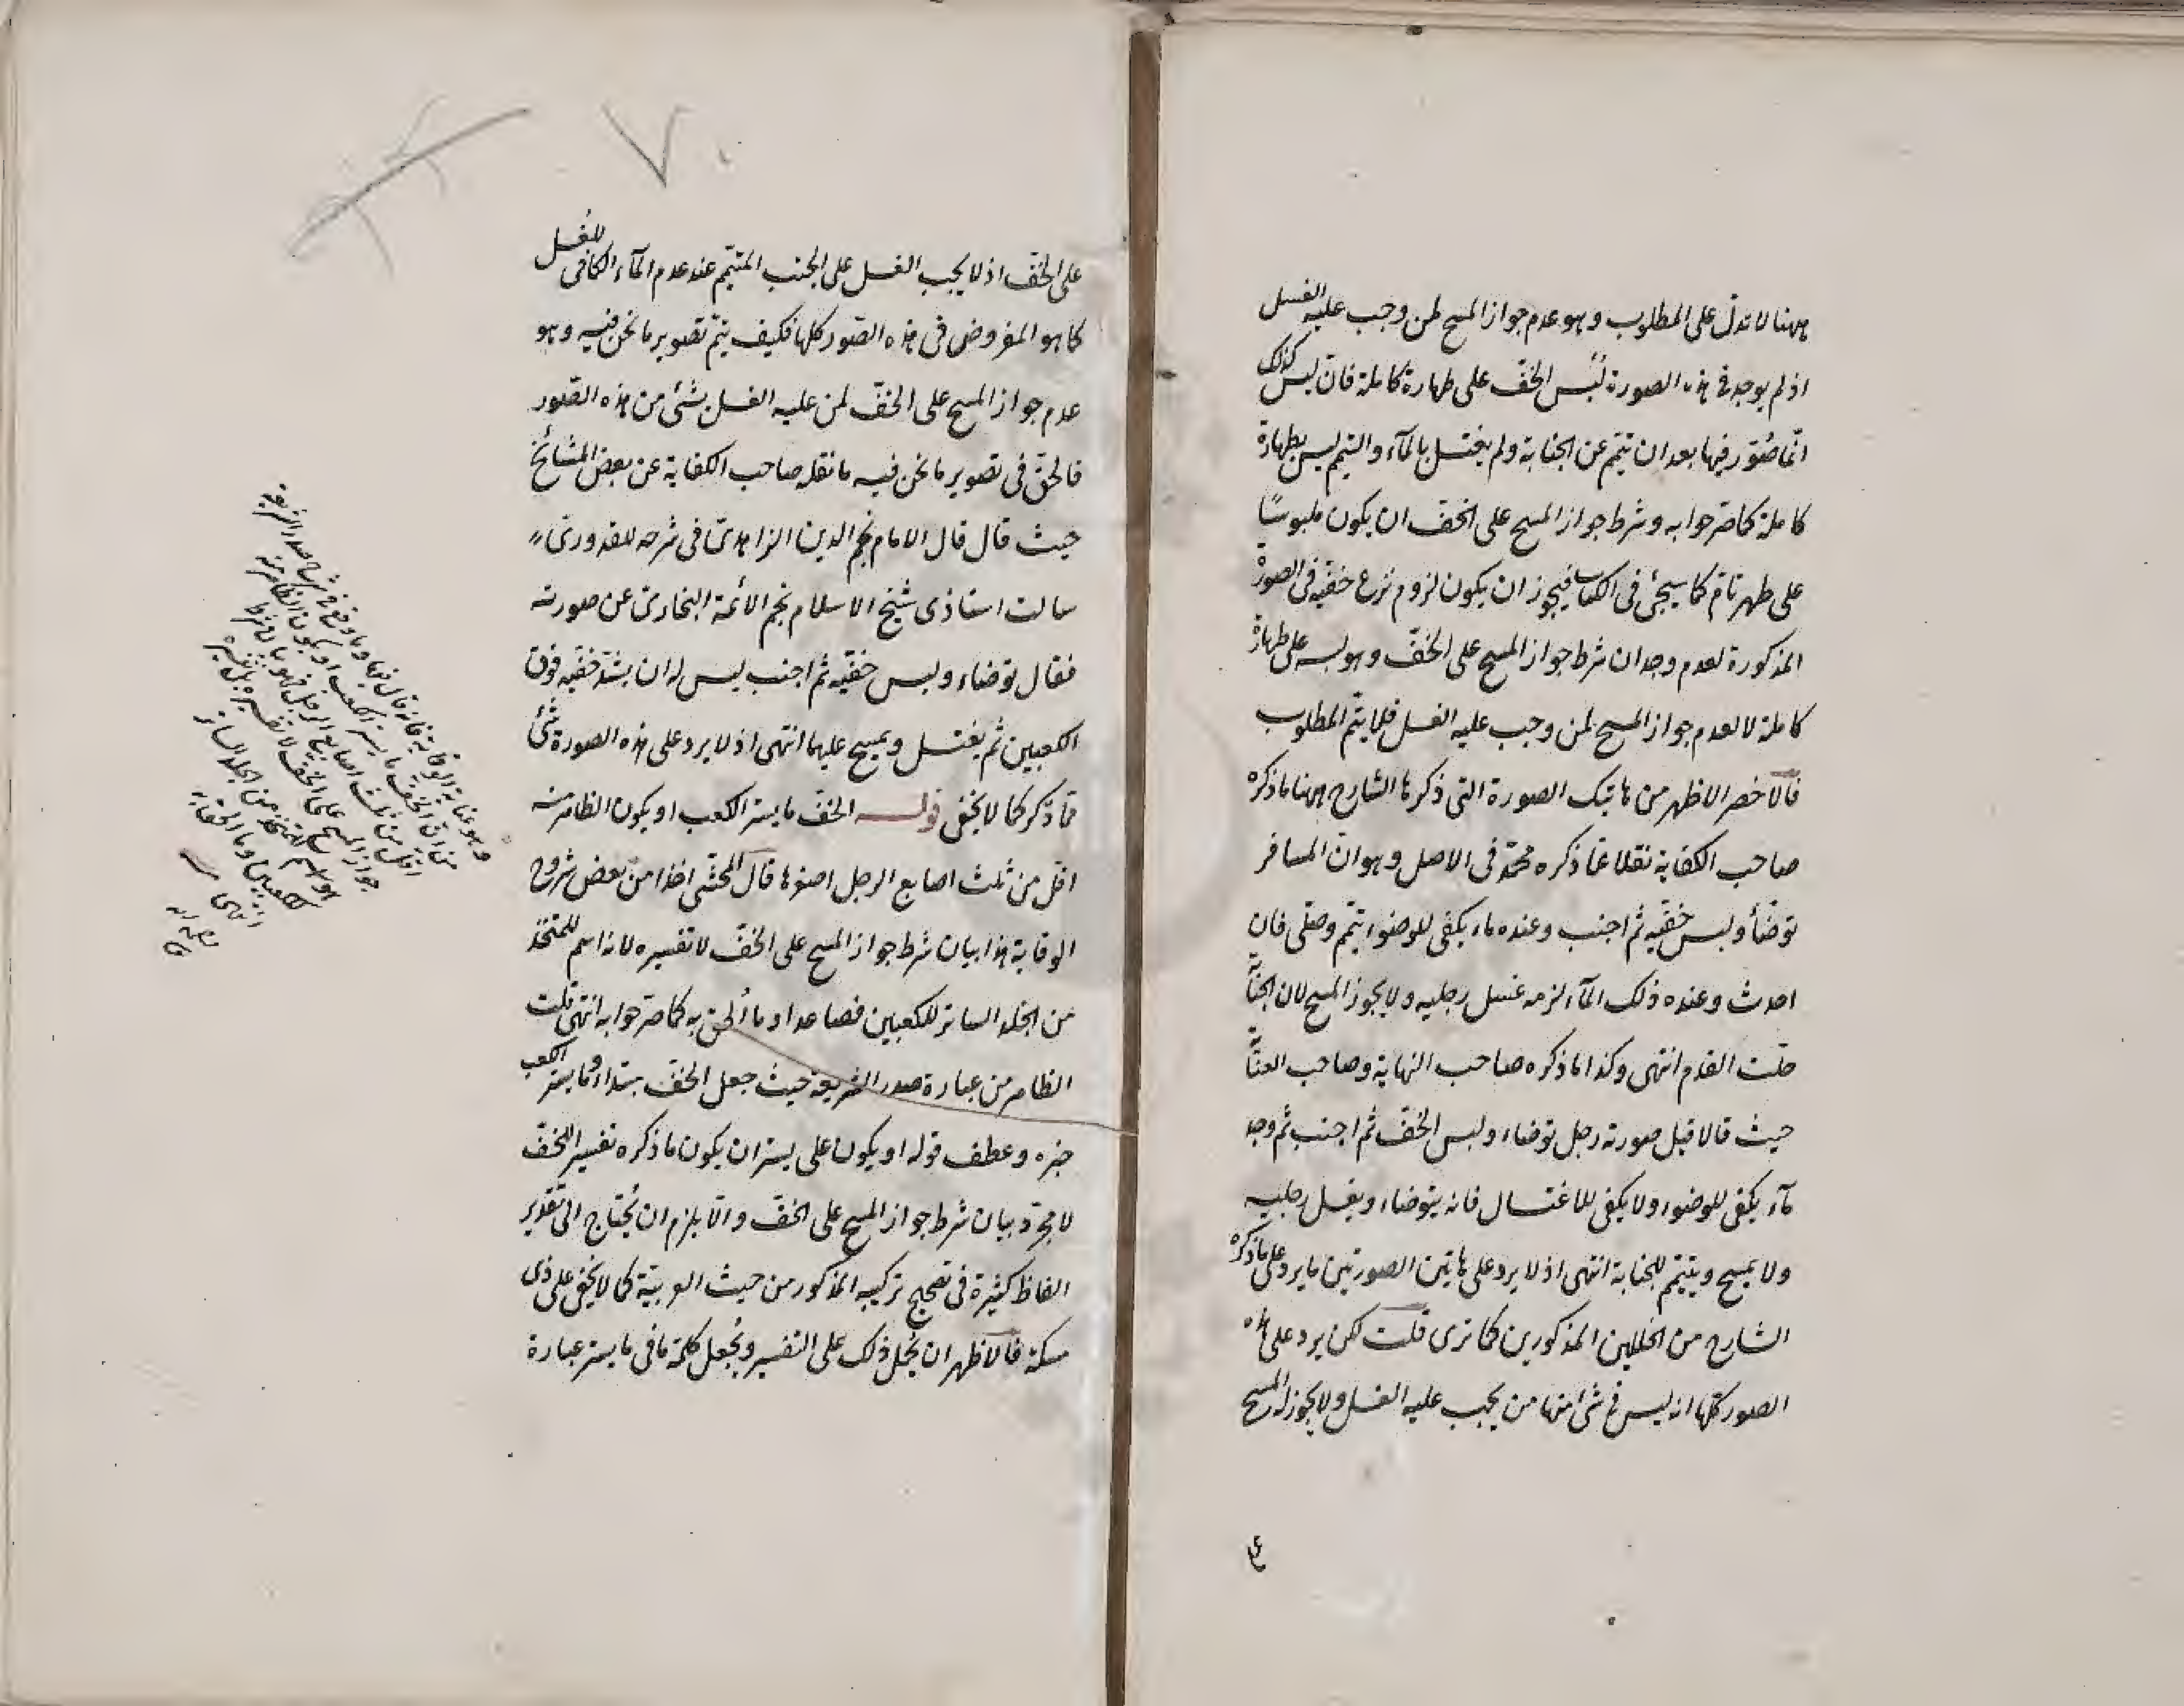 ههنا لا تدل على المطلوب وهو عدم جواز المسح لمن وجب عليه الغسل
اذ لم يوجد في هذه الصورة لبس الخف على طهارة كاملة فان لبس كذلك
انما صور فيها بعد ان تيمم عن الجنابة ولم يغتسل بالماء والتيمم ليس بطهارة
كاملة كما صرحوا به وشرط جواز المسح على الخف ان يكون ملبوسًا
على طهر تام كما سيجئ فى الكتاب فيجوز ان يكون لزوم نزع خفيه فى الصورة
المذكورة لعدم وجدان شرط جواز المسح على الخف وهو لبسه على طهارة
كاملة لا لعدم جواز المسح لمن وجب عليه الغسل فلا يتم المطلوب
فالاخصر الاظهر من هاتيك الصورة التى ذكرها الشارح ههنا ما ذكره
صاحب الكفاية نقلا عما ذكره محمد فى الاصل وهو ان المسافر
توضأ ولبس خفيه ثم اجنب وعنده ماء يكفى للوضوء تيمم وصلى فان
احدث وعنده ذلك الماء لزمه غسل رجليه ولا يجوز المسح لان الجنابة
حلت القدم انتهى وكذا ما ذكره صاحب النهاية وصاحب العناية
حيث قالا قيل صورته رجل توضاء ولبس الخف ثم اجنب ثم وجد
ماء يكفى للوضوء ولا يكفى للاغتسال فانه يتوضاء ويغسل رجليه
ولا يمسح ويتيمم للجنابة انتهى اذ لا يرد على هاتين الصورتين ما يرد على ما ذكره
الشارح من الخللين المذكورين كما ترى قلت لكن يرد على هذه
الصور كلها انه ليس فى شئ منها من يجب عليه الغسل ولا يجوز له المسح
على الخف اذ لا يجب الغسل على الجنب المتيمم عند عدم الماء الكافى للغسل
كما هو المفروض فى هذه الصور كلها فكيف يتم تصوير ما نحن فيه وهو
عدم جواز المسح على الخف لمن عليه الغسل بشئ من هذه الصور
فالحق فى تصوير ما نحن فيه ما نقله صاحب الكفاية عن بعض المشائخ
حيث قال قال الامام نجم الدين الزاهدى فى شرحه للقدورى
سالت استاذى شيخ الاسلام نجم الائمة البخارى عن صورته
فقال توضاء ولبس خفيه ثم اجنب ليس له ان يشد خفيه فوق
الكعبين ثم يغتسل ويمسح عليهما انتهى اذ لا يرد على هذه الصورة شئ
مما ذكر كما لا يخفى قوله الخف ما يستر الكعب او يكون الظاهر منه
اقل من ثلث اصابع الرجل اصغرها قال المحشى اخذا من بعض شروح
الوقاية هذا بيان شرط جواز المسح على الخف لا تفسيره لانه اسم للمتخذ
من الجلد الساتر للكعبين فصاعدا وما ألحق به كما صرحوا به انتهى قلت
الظاهر من عبارة صدر الشريعة حيث جعل الخف مبتدا وما يستر الكعب
خبره وعطف قوله او يكون على يستر ان يكون ما ذكره تفسير الخف
لا مجرد بيان شرط جواز المسح على الخف والا يلزم ان يُحتاج الى تقدير
الفاظ كثيرة فى تصحيح تركيبه المذكور من حيث العربية كما لا يخفى على ذى
مسكة فالاظهر ان يُحمل ذلك على التفسير ويُجعل كلمة ما فى ما يستر عبارة
وهو عناية الوقاية فانه قال فيها وما وقع فى شرحها لصدر الشريعة
من ان الخف ما يستر الكعب او يكون الظاهر منه
اقل من ثلث اصابع الرجل فهو بيان شرط
جواز المسح على الخف لا تفسيره
هو اسم للمتخذ من الجلد الساتر
للكعبين وما الحق به
انتهى
٧٠